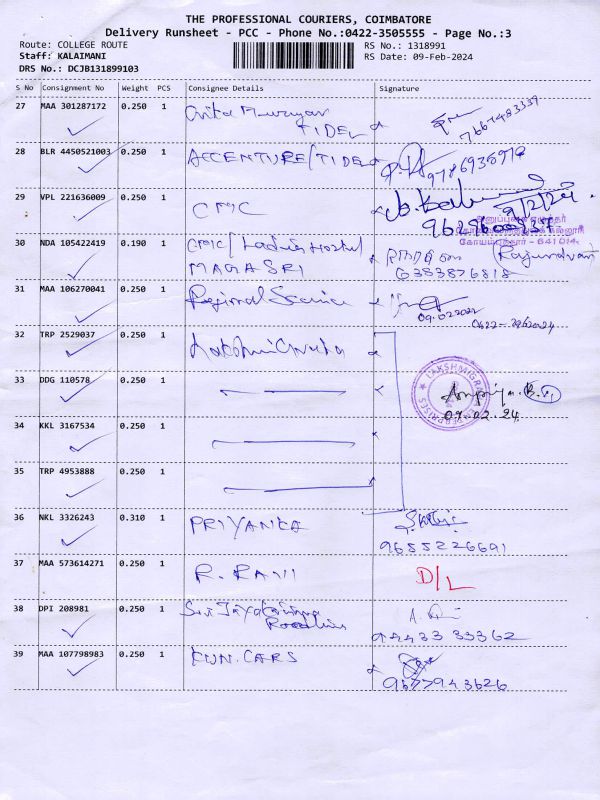 THE PROFESSIONAL COURIERS, COIMBATORE
Delivery Runsheet - PCC - Phone No.:0422-3505555 - Page No.:3
Route: COLLEGE ROUTE
RS No.: 1318991
Staff: KALAIMANI
RS Date: 09-Feb-2024
DRS No.: DCJB131899103
S No Consignment No Weight PCS Consignee Details Signature
27 MAA 301287172 0.250 1
TIDEL
7667483339
28 BLR 4450521003 0.250 1 ACCENTURE/TIDEL
9786935890
29 VPL 221636009 0.250 1 CMC
9/2/24
30 NDA 105422419 0.190 1 CMC/Ladies Hostel
கோயம்புத்தூர் - 641 014
MAGASRI
6383876818
31 MAA 106270041 0.250 1 Regional Science
32 TRP 2529037 0.250 1
33 DDG 110578 0.250 1
LAKSHMIGRAHA ENTERPRISES
09.02.24
34 KKL 3167534 0.250 1
35 TRP 4953888 0.250 1
36 NKL 3326243 0.310 1 PRIYANKA
9655226691
37 MAA 573614271 0.250 1 R. RAVI D/L
38 DPI 208981 0.250 1
94433 33362
39 MAA 107798983 0.250 1 KUN. CARS
9677943626